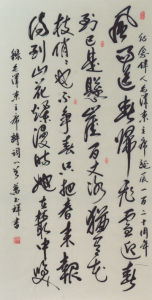 纪念伟人毛泽东主席诞辰一百二十周年
風雨送春歸飛雪迎春
到已是懸崖百丈冰犹有花
枝俏俏也不争春只把春来報
待到山花爛漫时她在叢中笑
录毛泽东主席詩词一首 玉祥书